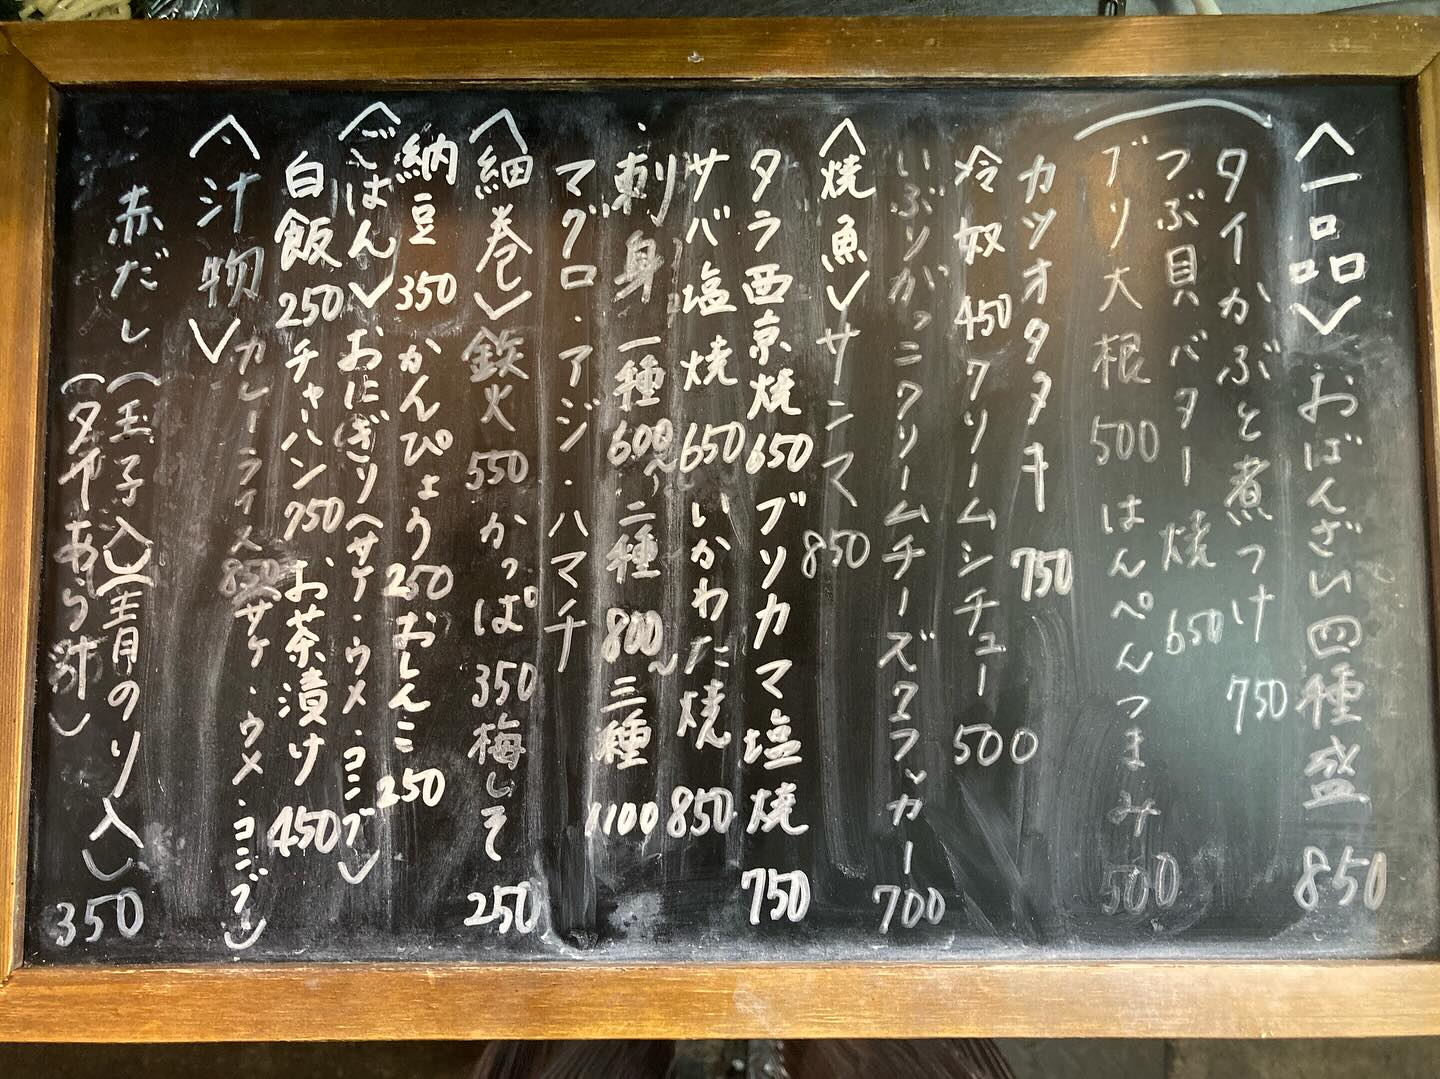 〈一品〉おばんざい四種盛 850
タイかぶと煮つけ 750
つぶ貝バター焼 650
ブリ大根 500 はんぺんつまみ 500
カツオタタキ 750
冷奴 450 クリームシチュー 500
いぶりがっこクリームチーズクラッカー 700
〈焼魚〉サンマ 850
タラ西京焼 650 ブリカマ塩焼 750
サバ塩焼 650 いかわた焼 850
刺身 一種 600〜 二種 800〜 三種 1100
マグロ・アジ・ハマチ
〈細巻〉鉄火 550 かっぱ 350 梅しそ 250
納豆 350 かんぴょう 250 おしんこ 250
〈ごはん〉おにぎり(サケ・ウメ・コンブ)
白飯 250 チャーハン 750 お茶漬け 450
カレーライス 850 (サケ・ウメ・コンブ)
〈汁物〉
赤だし(玉子入)(青のり入) 350
(タヤあら汁)